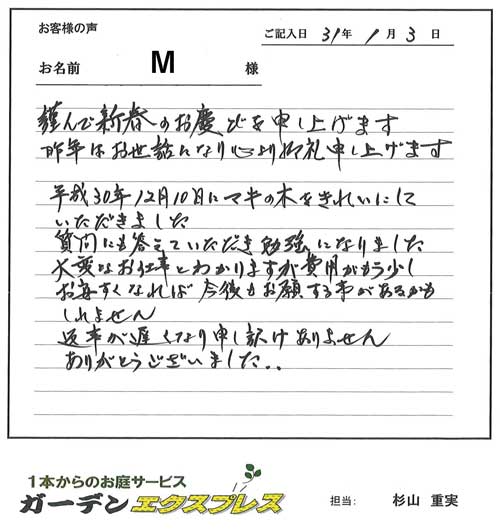 お客様の声
ご記入日 31年 1月 3日
お名前 M 様
謹んで新春のお慶びを申し上げます
昨年はお世話になり心より御礼申し上げます
平成30年12月10日にマキの木をきれいにして
いただきました
質問にも答えていただき勉強になりました
大変なお仕事とわかりますが費用がもう少し
お安すくなれば今後もお願する事があるかも
しれません
返事が遅くなり申し訳けありません
ありがとうございました..
1本からのお庭サービス
ガーデンエクスプレス
担当: 杉山 重実